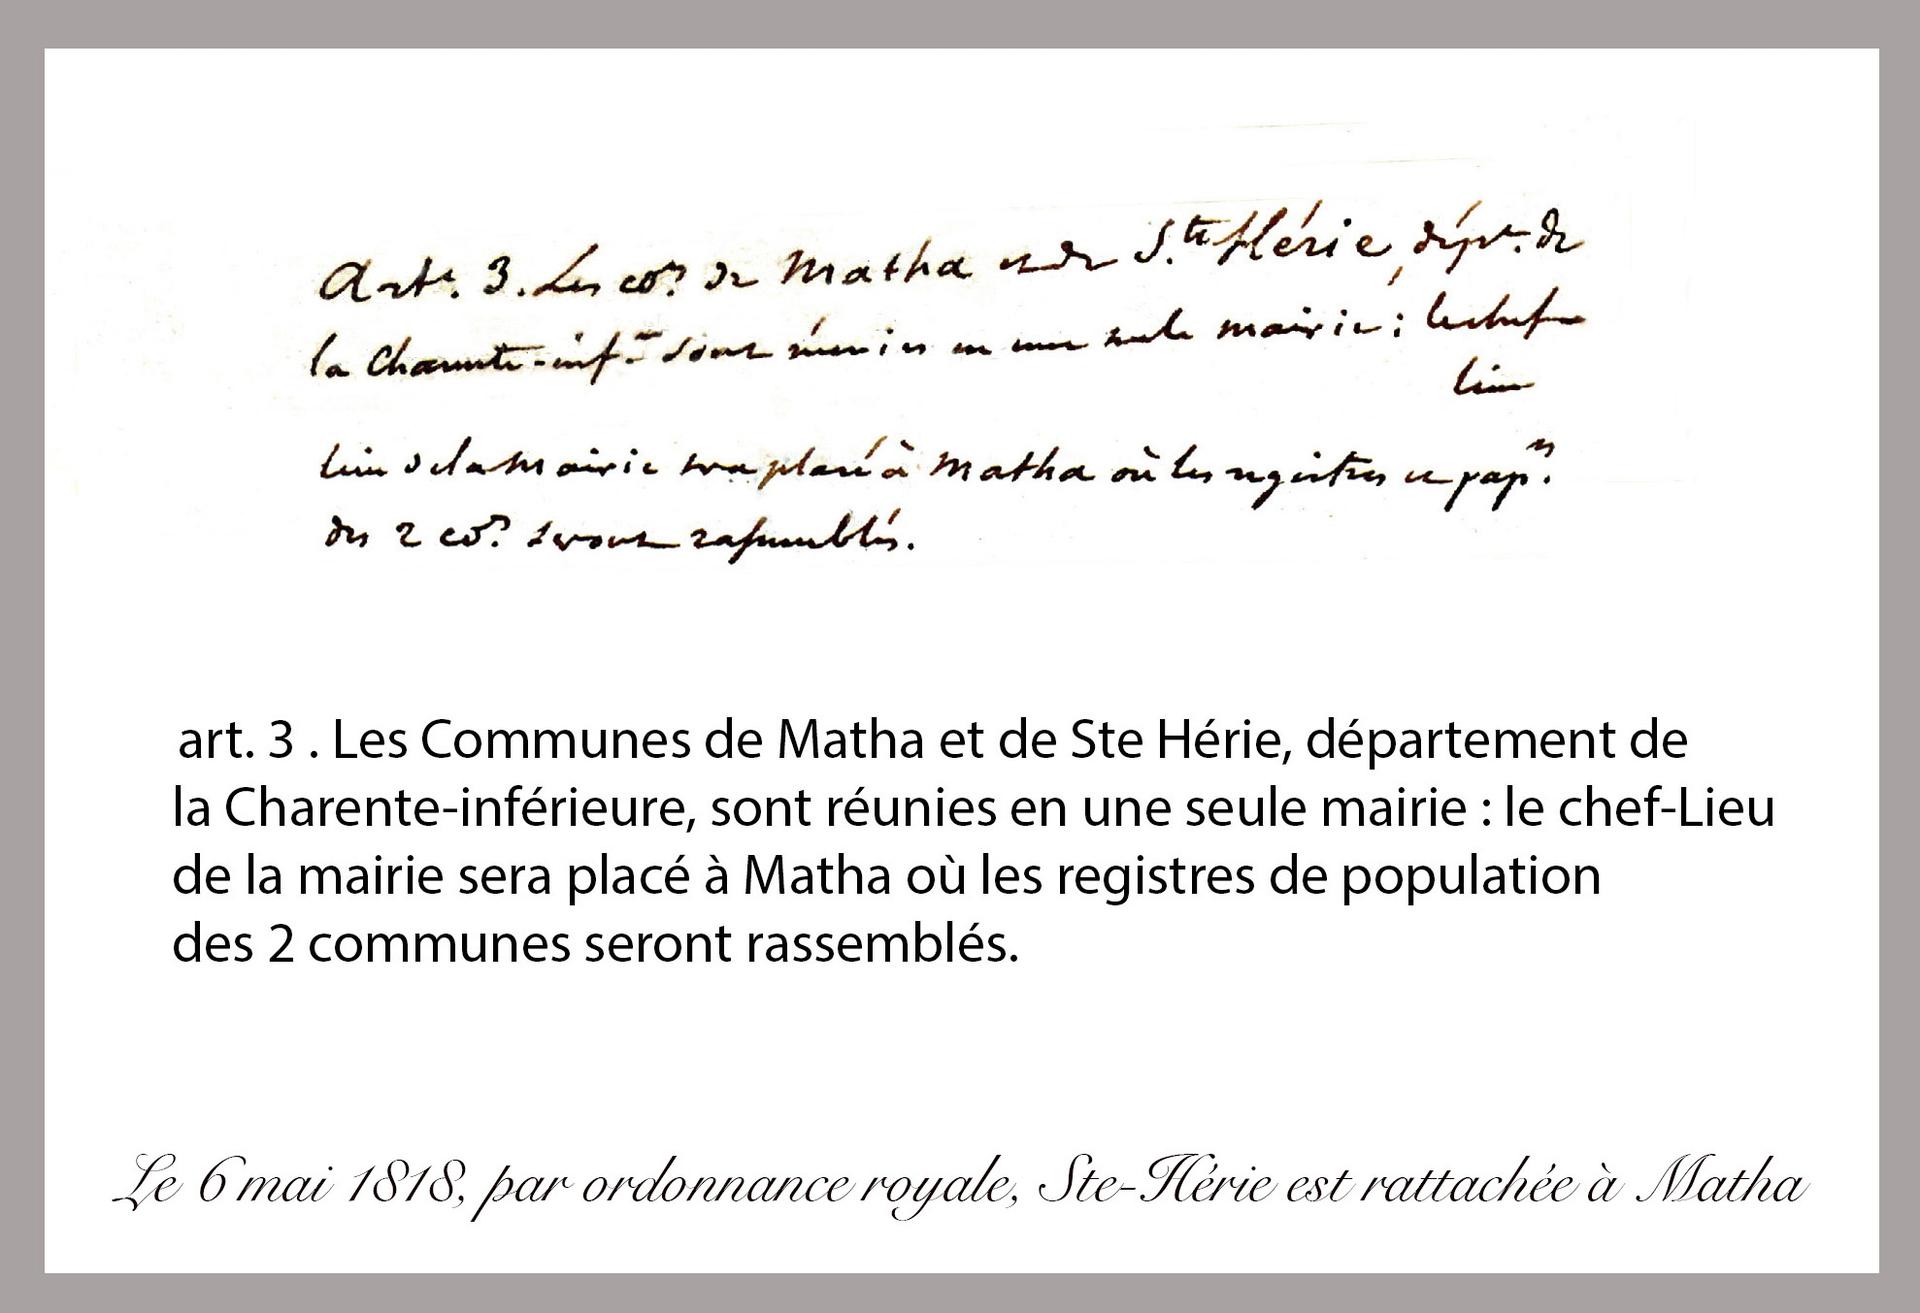 Art.e 3. Les co.es de Matha et de S.te Hérie, dép.t de
la Charente-inf.re sont réunies en une seule mairie ; le chef
lieu
lieu de la mairie sera placé à Matha où les registres et pap.rs
des 2 co.es seront rassemblés.
art. 3 . Les Communes de Matha et de Ste Hérie, département de
la Charente-inférieure, sont réunies en une seule mairie : le chef-Lieu
de la mairie sera placé à Matha où les registres de population
des 2 communes seront rassemblés.
Le 6 mai 1818, par ordonnance royale, Ste-Hérie est rattachée à Matha